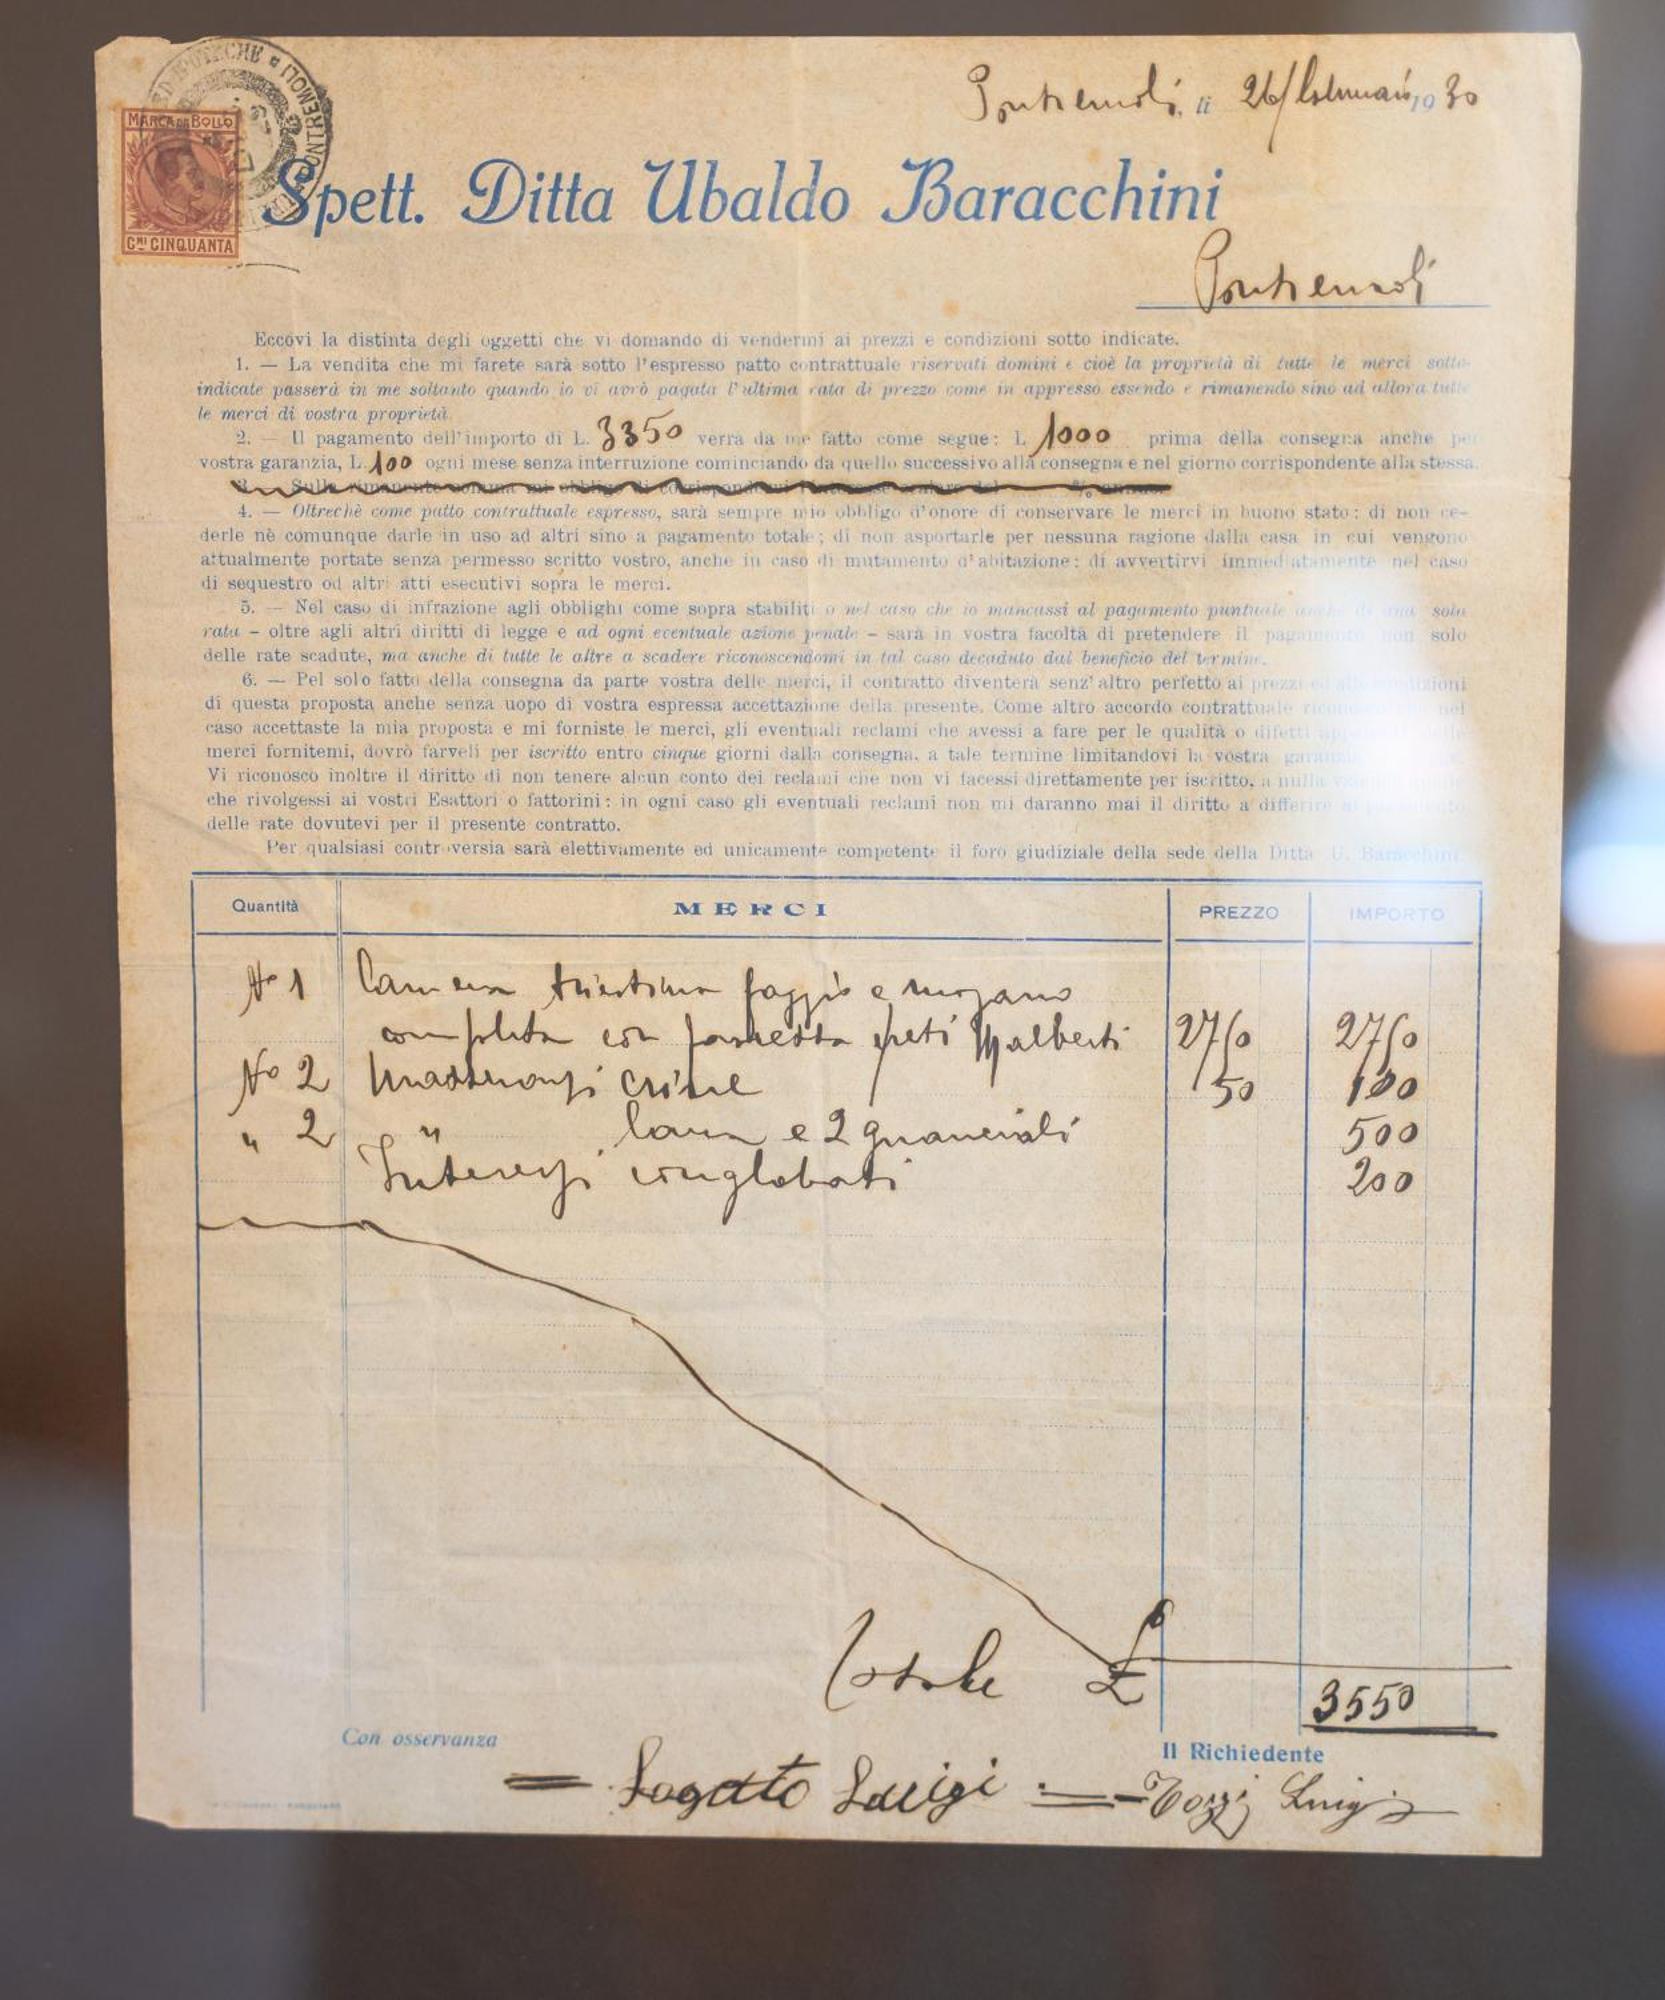 Pontremoli, li 26/Febbraio 1930
MARCA DA BOLLO
PONTREMOLI
Cmi CINQUANTA
Spett. Ditta Ubaldo Baracchini
Pontremoli
Eccovi la distinta degli oggetti che vi domando di vendermi ai prezzi e condizioni sotto indicate.
1. — La vendita che mi farete sarà sotto l'espresso patto contrattuale riservati domini e cioè la proprietà di tutte le merci sotto-
indicate passerà in me soltanto quando io vi avrò pagata l'ultima rata di prezzo come in appresso essendo e rimanendo sino ad allora tutte
le merci di vostra proprietà.
2. — Il pagamento dell'importo di L. 3350 verrà da me fatto come segue: L 1000 prima della consegna anche per
vostra garanzia, L. 100 ogni mese senza interruzione cominciando da quello successivo alla consegna e nel giorno corrispondente alla stessa.
4. — Oltrechè come patto contrattuale espresso, sarà sempre mio obbligo d'onore di conservare le merci in buono stato: di non ce-
derle nè comunque darle in uso ad altri sino a pagamento totale; di non asportarle per nessuna ragione dalla casa in cui vengono
attualmente portate senza permesso scritto vostro, anche in caso di mutamento d'abitazione: di avvertirvi immediatamente nel caso
di sequestro od altri atti esecutivi sopra le merci.
5. — Nel caso di infrazione agli obblighi come sopra stabiliti o nel caso che io mancassi al pagamento puntuale anche di una sola
rata – oltre agli altri diritti di legge e ad ogni eventuale azione penale – sarà in vostra facoltà di pretendere il pagamento non solo
delle rate scadute, ma anche di tutte le altre a scadere riconoscendomi in tal caso decaduto dal beneficio del termine.
6. — Pel solo fatto della consegna da parte vostra delle merci, il contratto diventerà senz'altro perfetto ai prezzi ed alle condizioni
di questa proposta anche senza uopo di vostra espressa accettazione della presente. Come altro accordo contrattuale nel
caso accettaste la mia proposta e mi forniste le merci, gli eventuali reclami che avessi a fare per le qualità o difetti delle
merci fornitemi, dovrò farveli per iscritto entro cinque giorni dalla consegna, a tale termine limitandovi la vostra
Vi riconosco inoltre il diritto di non tenere alcun conto dei reclami che non vi facessi direttamente per iscritto, a nulla
che rivolgessi ai vostri Esattori o fattorini: in ogni caso gli eventuali reclami non mi daranno mai il diritto a differire
delle rate dovutevi per il presente contratto.
Per qualsiasi controversia sarà elettivamente ed unicamente competente il foro giudiziale della sede della Ditta U. Baracchini
Quantità MERCI PREZZO IMPORTO
No 1 Camera triestina faggio e mogano
completa con 2750 2750
No 2 Materassi crine 50 100
" 2 " lana e 2 guanciali 500
Interessi conglobati 200
Totale £ 3550
Con osservanza Il Richiedente
= Luigi = Tozzi Luigi